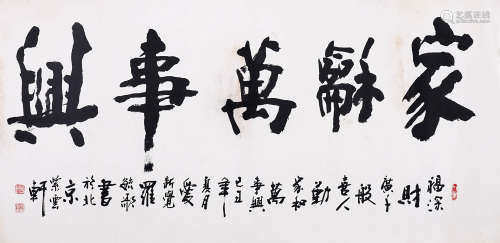 家龢萬事興
福深財廣千般喜人勤家和萬事興己丑年夏月愛新覺羅毓書於北京紫雲軒